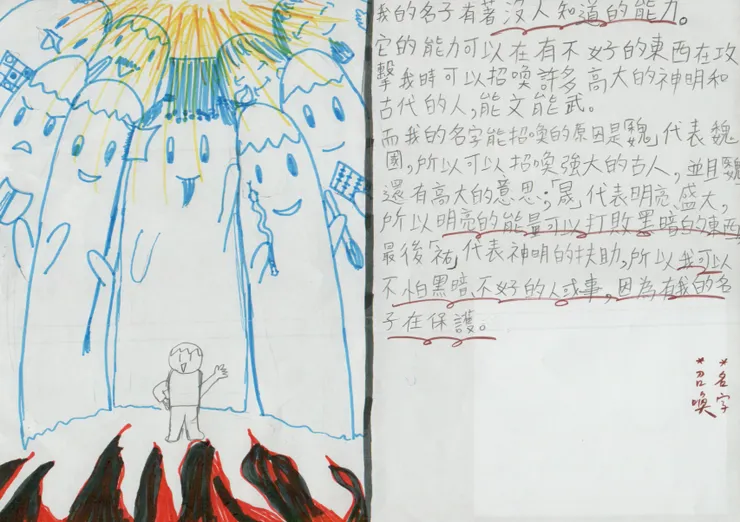 我的名子有著沒人知道的能力。
它的能力可以在有不好的東西在攻
擊我時可以招喚許多高大的神明和
古代的人,能文能武。
而我的名字能招喚的原因是「魏」代表魏
國,所以可以招喚強大的古人,並且「魏」
還有高大的意思;「晟」代表明亮、盛大,
所以明亮的能量可以打敗黑暗的東西,
最後「祐」代表神明的扶助,所以我可以
不怕黑暗、不好的人或事,因為有我的名
子在保護。
*名字
*召喚